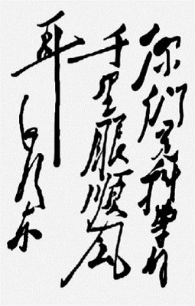 你们是科学的
千里眼顺风
耳
毛泽东